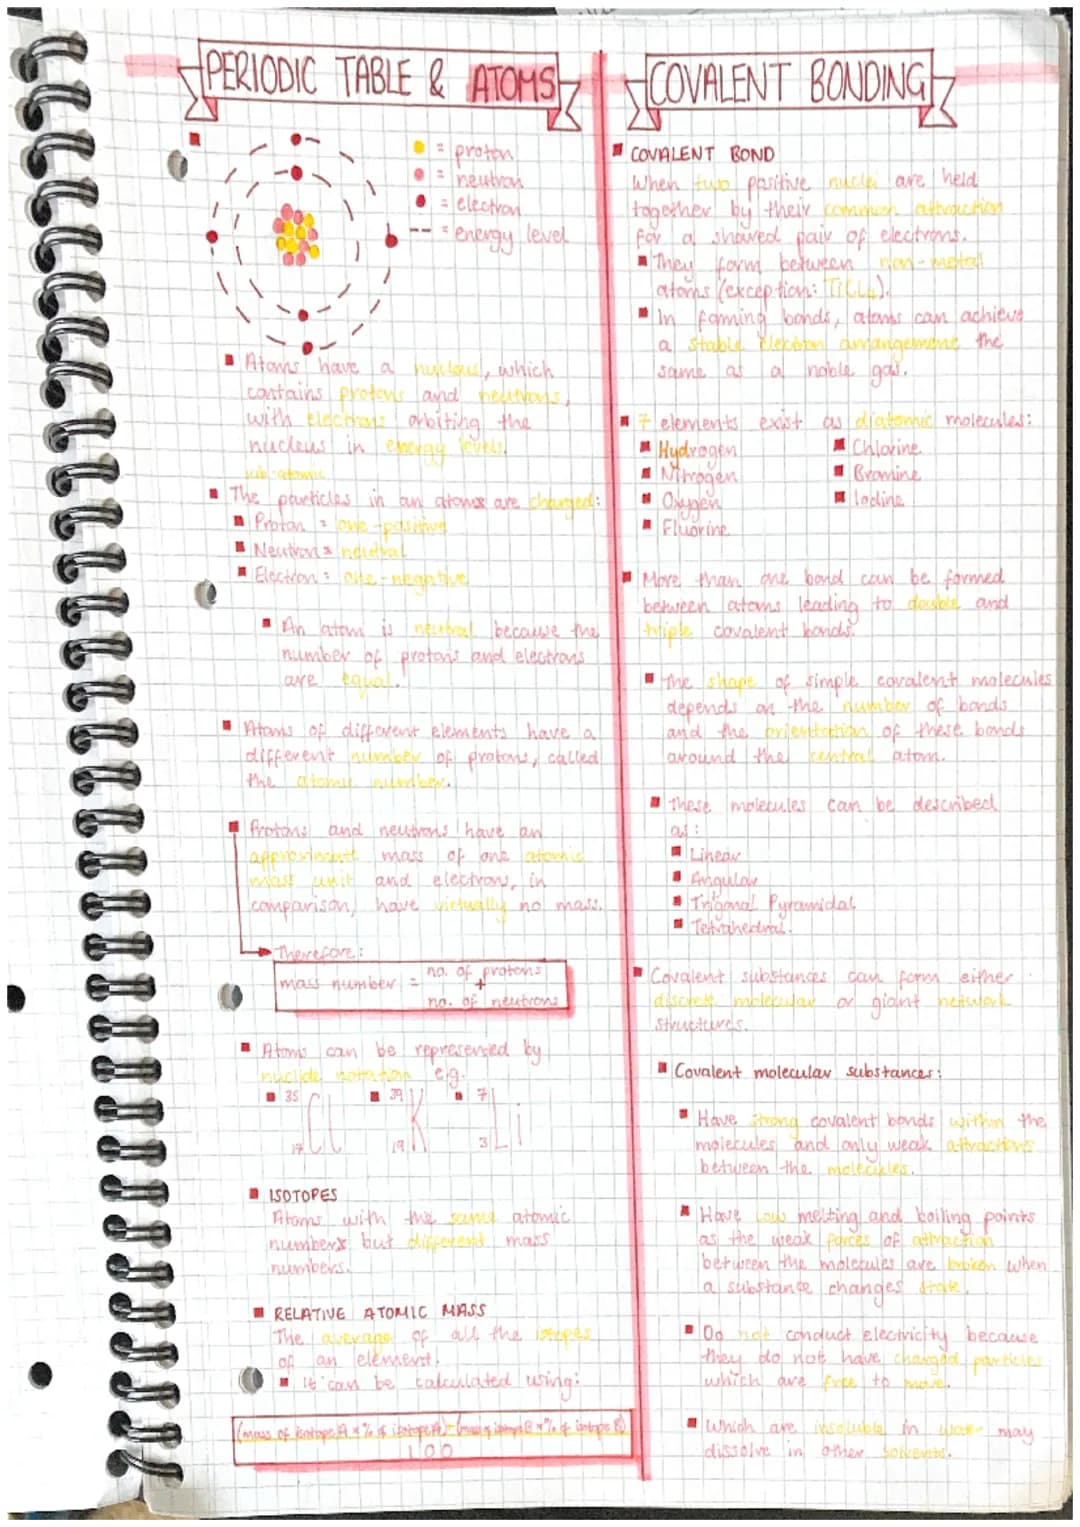 PERIODIC TABLE & ATOMS
= proton
= neutron
= electron
-- = energy level
Atoms have a nucleus, which
contains protons and neutrons,
with electrons orbiting the
nucleus in energy levels.
sub-atomic
The particles in an atoms are charged:
Proton = one-positive
Neutron = neutral
Electron = one-negative
An atom is neutral because the
number of protons and electrons
are equal.
Atoms of different elements have a
different number of protons, called
the atomic number.
Protons and neutrons have an
approximate mass of one atomic
mass unit and electrons, in
comparison, have virtually no mass.
Therefore:
mass number = no. of protons
+
no. of neutrons
Atoms can be represented by
nuclide notation e.g.
35 39 7
Cl K Li
17 19 3
ISOTOPES
Atoms with the same atomic
numbers but different mass
numbers.
RELATIVE ATOMIC MASS
The average of all the isotopes
of an element.
It can be calculated using:
(mass of isotope A × % of isotope A) + (mass of isotope B × % of isotope B)
100
COVALENT BONDING
COVALENT BOND
When two positive nuclei are held
together by their common attraction
for a shared pair of electrons.
They form between non-metal
atoms (exception: TiCl4).
In forming bonds, atoms can achieve
a stable electron arrangement the
same as a noble gas.
7 elements exist as diatomic molecules:
Hydrogen
Nitrogen
Oxygen
Fluorine
Chlorine
Bromine
Iodine
More than one bond can be formed
between atoms leading to double and
triple covalent bonds.
The shape of simple covalent molecules
depends on the number of bonds
and the orientation of these bonds
around the central atom.
These molecules can be described
as:
Linear
Angular
Trigonal Pyramidal
Tetrahedral.
Covalent substances can form either
discrete molecular or giant network
structures.
Covalent molecular substances:
Have strong covalent bonds within the
molecules and only weak attractions
between the molecules.
Have low melting and boiling points
as the weak forces of attraction
between the molecules are broken when
a substance changes state.
Do not conduct electricity because
they do not have charged particles
which are free to move.
Which are insoluble in water may
dissolve in other solvents.